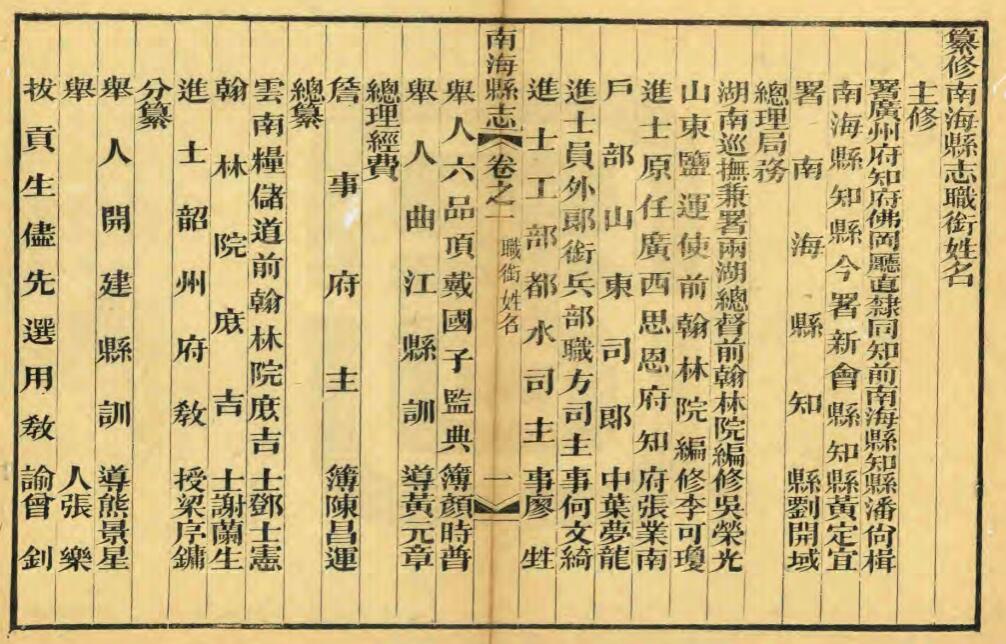 纂修南海縣志職銜姓名
主修
署廣州府知府佛岡廳直隸同知前南海縣知縣潘尙楫
南海縣知縣今署新會縣知縣黃定宜
署南海縣知縣劉開域
總理局務
湖南巡撫兼署兩湖總督前翰林院編修吳榮光
山東鹽運使前翰林院編修李可瓊
進士原任廣西思恩府知府張業南
戶部山東司郎中葉夢龍
進士員外郎銜兵部職方司主事何文綺
進士工部都水司主事廖甡
南海縣志
卷之一
職銜姓名
一
舉人六品頂戴國子監典簿顏時普
舉人曲江縣訓導黃元章
總理經費
詹事府主簿陳昌運
總纂
雲南糧儲道前翰林院庶吉士鄧士憲
翰林院庶吉士謝蘭生
進士韶州府敎授梁序鏞
分纂
舉人開建縣訓導熊景星
舉人張樂
拔貢生儘先選用敎諭曾釗